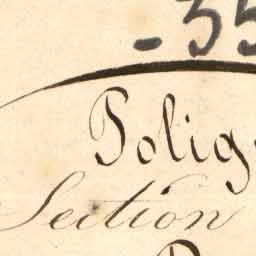 - 35
Polig
Section